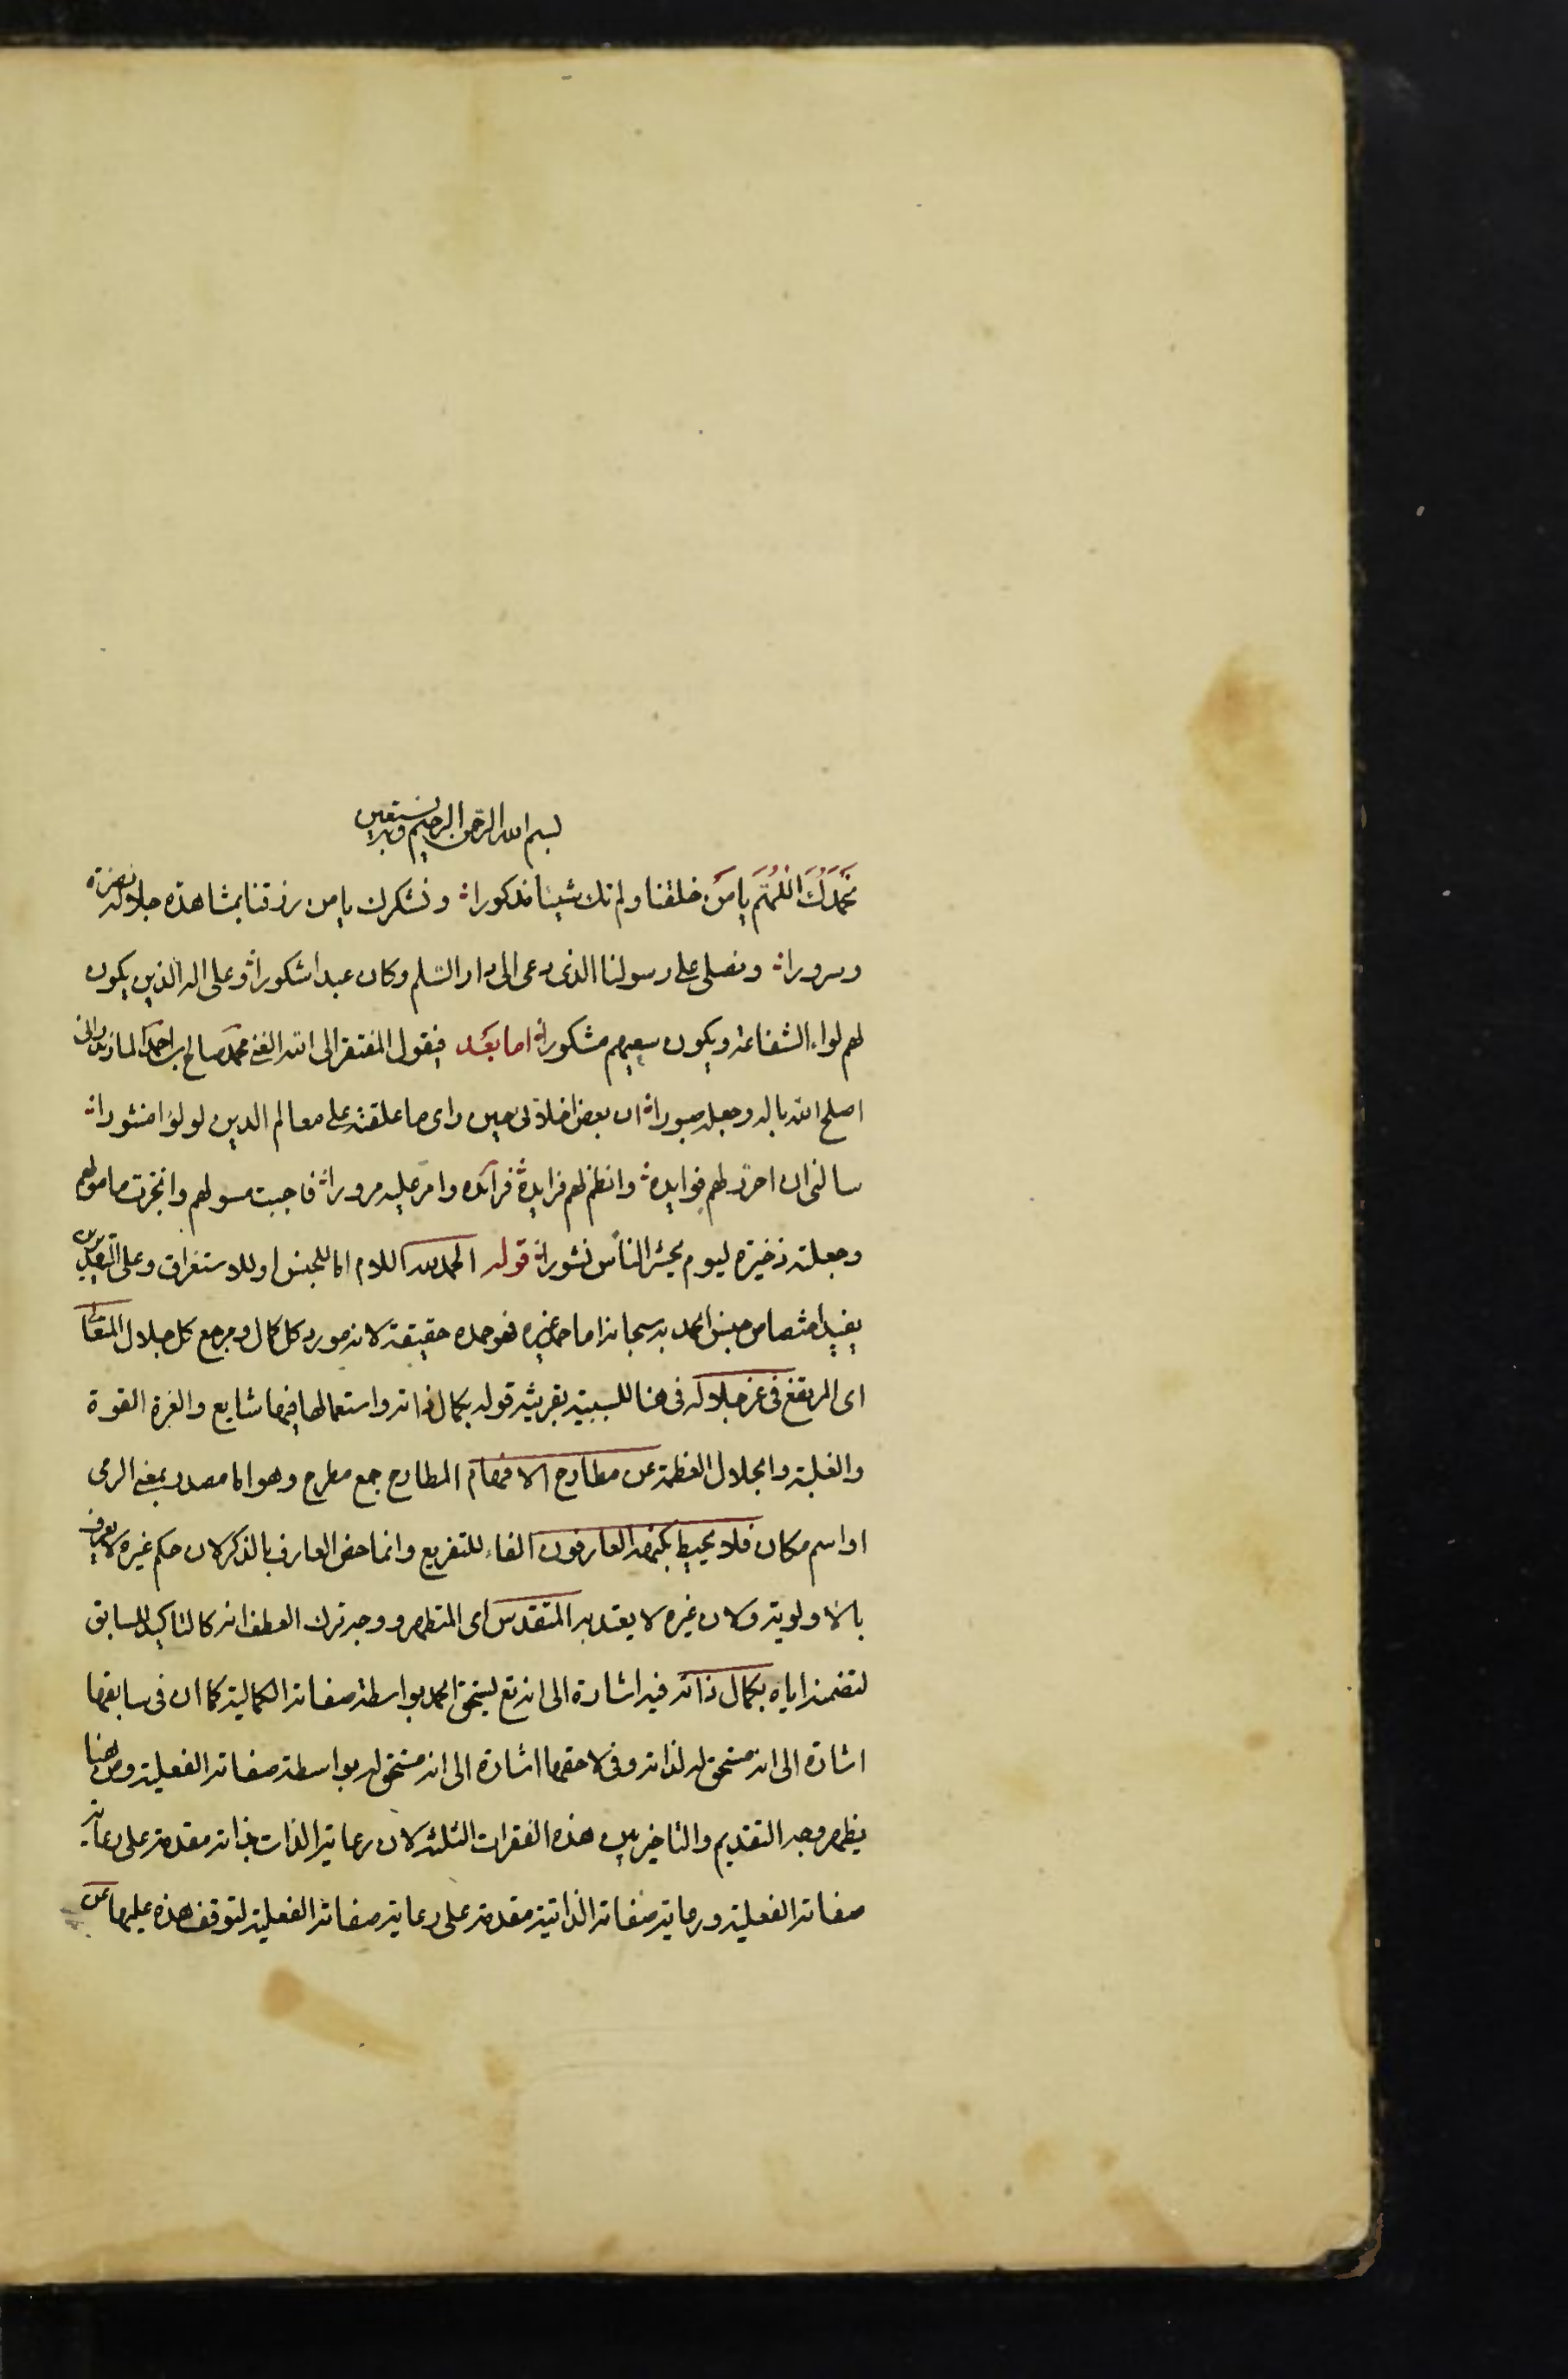 بسم الله الرحمن الرحيم وبه نستعين
نحمدك اللهم يا من خلقنا ولم نك شيئا مذكورا ونشكرك يا من رزقنا بمشاهدة جلاله نضرة
وسرورا ونصلي على رسولنا الذي دعى الى دار السلم وكان عبدا شكورا وعلى اله الذين يكون
لهم لواء الشفاعة ويكون سعيهم مشكورا اما بعد فيقول المفتقر الى الله الغني محمد صالح ابن احمد المازندراني
اصلح الله باله وجعله صبورا ان بعض اخلائي حين راى ما علقته على معالم الدين لولؤا منثورا
سالني ان احرر لهم فوايده وانظم لهم فرايده فرائده وامر عليه مرورا فاجبت مسولهم وانجزت مامولهم
وجعلته ذخيرة ليوم يحشر الناس نشورا قوله الحمد لله اللام اما للجنس او للاستغراق وعلى التقديرين
يفيد اختصاص جنس الحمد به سبحانه اما حمد غيره فهو حمده حقيقة لانه مورد كل كمال ومرجع كل جلال المتعالي
اى المرتفع في عز جلاله في هنا للسببية بقرينة قوله بكمال ذاته واستعمالها فيها شايع والعزة القوة
والغلبة والجلال العظمة عن مطارح الافهام المطارح جمع مطرح وهو اما مصدر بمعنى الرمى
او اسم مكان فلا يحيط بكنهه العارفون الفاء للتفريع وانما خص العارف بالذكر لان حكم غيره لا يعرف
بالاولوية ولان غيره لا يعتد به المتقدس اى المتطهر ووجه ترك العطف انه كالتاكيد للسابق
لتضمنه اياه بكمال ذاته فيه اشارة الى انه تع يستحق الحمد بواسطة صفاته الكمالية كما ان في سابقها
اشارة الى انه مستحق له لذاته وفي لاحقها اشارة الى انه مستحق له بواسطة صفاته الفعلية ومن هنا
يظهر وجه التقديم والتاخير بين هذه الفقرات الثلثة لان رعاية الذات بذاته مقدمة على رعاية
صفاته الفعلية ورعاية صفاته الذاتية مقدمة على رعاية صفاته الفعلية لتوقف هذه عليها عن